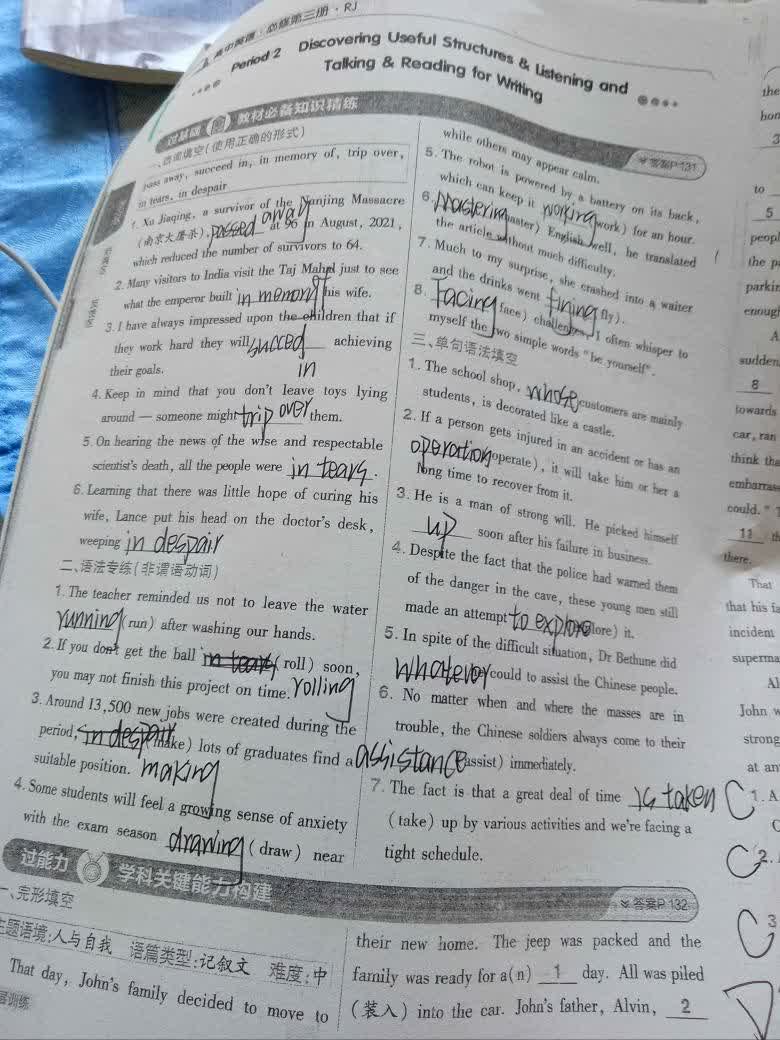 高中英语·必修第三册·RJ
Period 2 Discovering Useful Structures & Listening and
Talking & Reading for Writing
过基础 教材必备知识精练
答案P131
一、选词填空(使用正确的形式)
pass away, succeed in, in memory of, trip over,
in tears, in despair
1. Xu Jiaqing, a survivor of the Nanjing Massacre
(南京大屠杀), passed away at 96 in August, 2021,
which reduced the number of survivors to 64.
2. Many visitors to India visit the Taj Mahal just to see
what the emperor built in memory of his wife.
3. I have always impressed upon the children that if
they work hard they will succeed achieving
in
their goals.
4. Keep in mind that you don't leave toys lying
around — someone might trip over them.
5. On hearing the news of the wise and respectable
scientist's death, all the people were in tears.
6. Learning that there was little hope of curing his
wife, Lance put his head on the doctor's desk,
weeping in despair
二、语法专练(非谓语动词)
1. The teacher reminded us not to leave the water
running (run) after washing our hands.
2. If you don't get the ball in tears (roll) soon,
you may not finish this project on time. rolling
3. Around 13,500 new jobs were created during the
period, in despair (make) lots of graduates find a
suitable position. making
4. Some students will feel a growing sense of anxiety
with the exam season drawing (draw) near
while others may appear calm.
5. The robot is powered by a battery on its back,
which can keep it working (work) for an hour.
6. Mastering (master) English well, he translated
the article without much difficulty.
7. Much to my surprise, she crashed into a waiter
and the drinks went (fly).
8. Facing (face) challenges, I often whisper to
myself the two simple words "be yourself".
三、单句语法填空
1. The school shop, whose customers are mainly
students, is decorated like a castle.
2. If a person gets injured in an accident or has an
operation (operate), it will take him or her a
long time to recover from it.
3. He is a man of strong will. He picked himself
up soon after his failure in business.
4. Despite the fact that the police had warned them
of the danger in the cave, these young men still
made an attempt to explore (explore) it.
5. In spite of the difficult situation, Dr Bethune did
whatever could to assist the Chinese people.
6. No matter when and where the masses are in
trouble, the Chinese soldiers always come to their
assistance (assist) immediately.
7. The fact is that a great deal of time is taken
(take) up by various activities and we're facing a
tight schedule.
过能力 学科关键能力构建
答案P132
一、完形填空
主题语境:人与自我 语篇类型:记叙文 难度:中
That day, John's family decided to move to
their new home. The jeep was packed and the
family was ready for a(n) 1 day. All was piled
(装入) into the car. John's father, Alvin, 2
the
3
to
5
the pa
parkin
enough
A
sudden
8
towards
car, ran
think the
embarrass
could."
11 th
there.
That
that his fa
incident
superma
Al
John w
strong
at an
C 1. A
C
C 2.
C 3